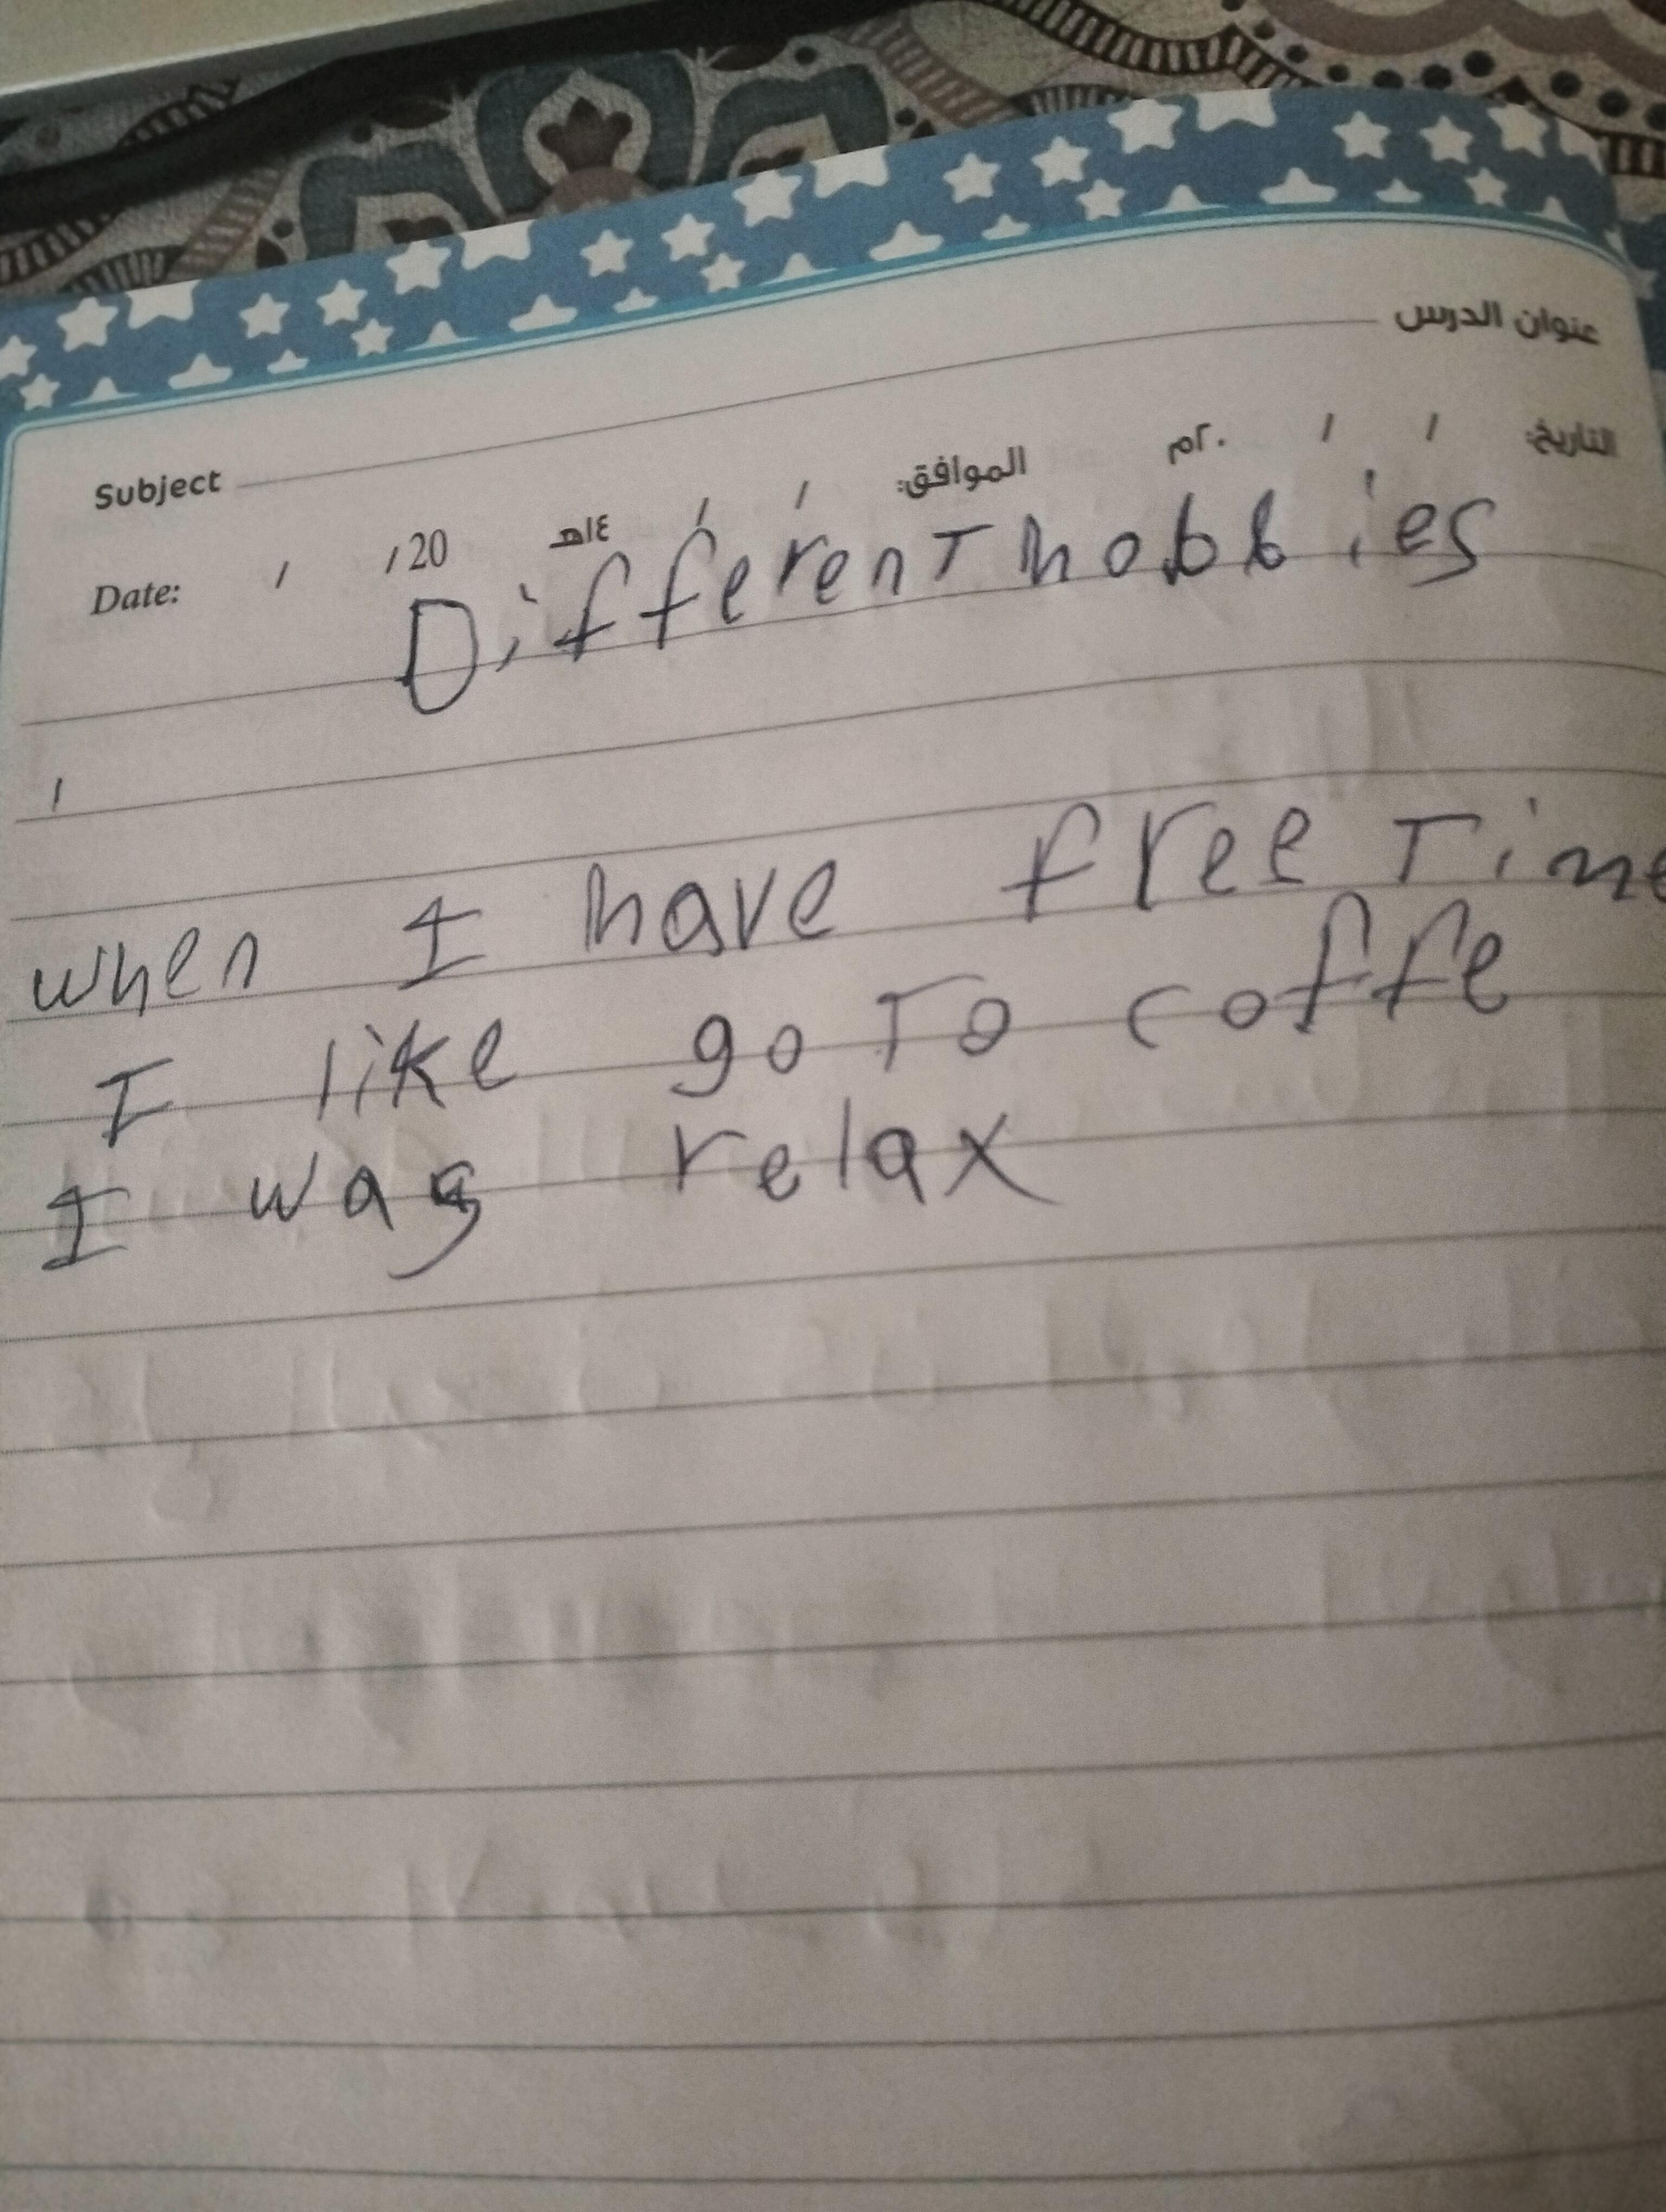 عنوان الدرس
Subject
التاريخ: / / ٢٠م الموافق: / / ١٤هـ
Date: / /20
Different hobbies
when I have free Time
I like go To coffe
I was relax